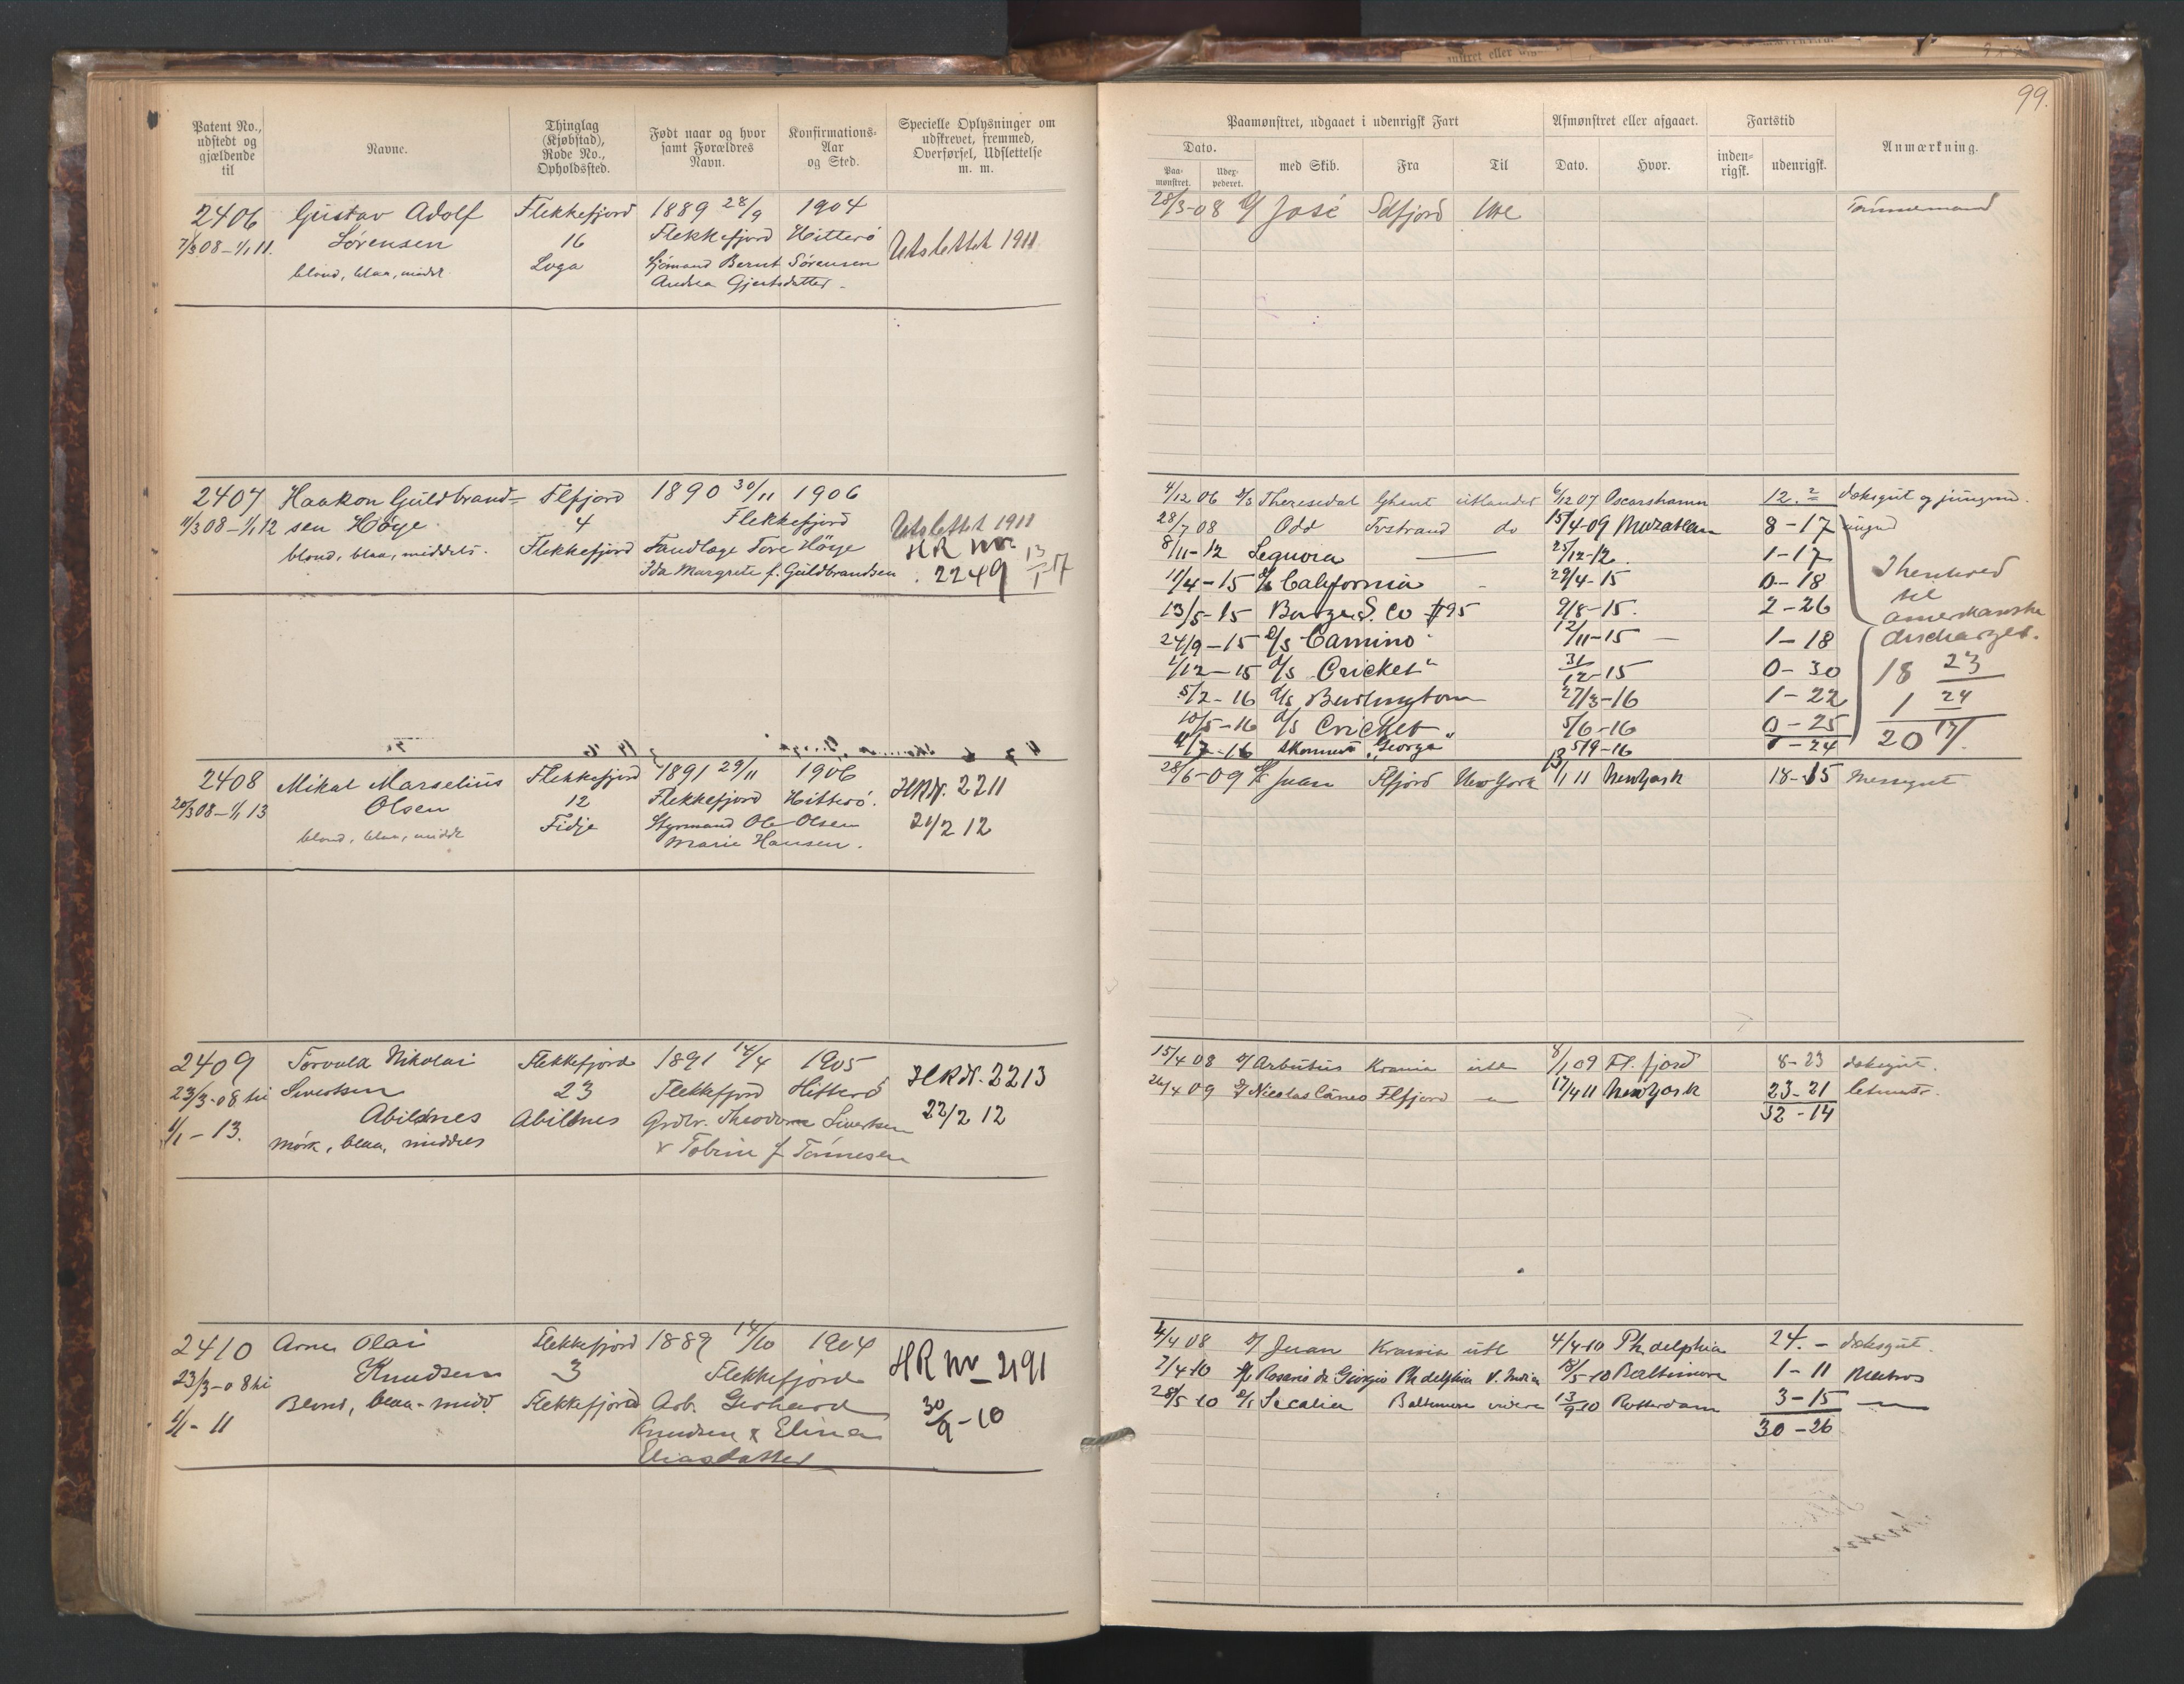 99.
Patent No., udstedt og gjældende til
Navne.
Thinglag (Kjøbstad), Rode No., Opholdssted.
Født naar og hvor samt Forældres Navn.
Konfirmations-Aar og Sted.
Specielle Oplysninger om udskrevet, fremmed, Overførsel, Udslettelse m. m.
Paamønstret, udgaaet i udenrigsk Fart
Afmønstret eller afgaaet.
Fartstid
Anmærkning.
Dato.
Paa-mønstret.
Udex-pederet.
med Skib.
Fra
Til
Dato.
Hvor.
inden-rigsk.
udenrigsk.
2406 Gustav Adolf Flekkefjord 1889 28/9 1904
7/3 08 – 1/1 11. Sørensen 16 Flekkefjord Hitterø Utslettet 1911
blond, blaa, midd. Loga Sjømand Bernt Sørensen
Andrea Gjertsdatter
28/3-08 José Selfjord Ute
2407 Haakon Guldbrand- Flfjord 1890 30/11 1906
11/3 08 – 1/1 12 sen Høye 4 Flekkefjord Utslettet 1911
blond, blaa, middels. Flekkefjord Tandlæge Tore Høye HR Nr
Ida Margrete f. Guldbrandsen 2249 13/1 17
4/12 06 Theresedal Ghent utlandet 6/12 07 Oscarshamn 12. 2 dæksgut og jungmd.
28/7 08 Odd Tvstrand do 15/4-09 8-17 ungmd
8/11-12 Sequoia 25/12-12. 1-17
11/4-15 California 29/4-15 0-18 I henhold
13/5-15 Barge S. Co #95 9/8-15. 2-26 til amerikanske
24/9-15 D/S Camino 12/11-15 1-18 discharges.
1/12-15 D/S Cricket 31/12-15 0-30 18 23
5/2-16 D/S Burlington 27/3-16 1-22 1 24
10/5-16 D/S Cricket 5/6-16 0-25 20 17/.
11/7-16 Skonnert Georga 5/9-16 1-24
2408 Mikal Marselius Flekkefjord 1891 29/11 1906 HRNr. 2211
20/3 08 – 1/1 13 Olsen 12 Flekkefjord Hitterø.
blond, blaa, midd. Fidje Styrmand Ole Olsen 21/2 12
Marie Hansen.
28/6-09 Juan Flfjord New York 13/1 11 New York 18-15 Messegut
2409 Torvald Nikolai Flekkefjord 1891 14/4 1905 HRNr. 2213
23/3-08 til Sivertsen 23 Flekkefjord Hitterø
1/1-13. Abildnes Abildnes Grdbr. Theodor Sivertsen 22/2 12
Mörk, blaa, middels & Tobine f Tönnesen
15/4 08 Arbutus Krania utl 8/1 09 Fl.fjord 8-23 dæksgut.
26/4 09 Nicolas Cuneo Flfjord 17/4 11 New York 23-21 letmatr.
32-14
2410 Arne Olai Flekkefjord 1889 14/10 1904 HR Nr 2191
23/3-08 til Knudsen 3 Flekkefjord
1/1-11 Blond, blaa - midd. Flekkefjord Arb. Gerhard 30/9-10
Knudsen & Elina
Eliasdatter
4/4 08 Juan Krania utl 4/4-10 Phdelphia 24.- dæksgut.
7/4-10 Rosario di Giorgio Phdelphia V. India 18/5-10 Baltimore 1-11 Matros
28/5 10 D/S Sicalia Baltimore videre 13/9-10 Rotterdam 3-15
30-26